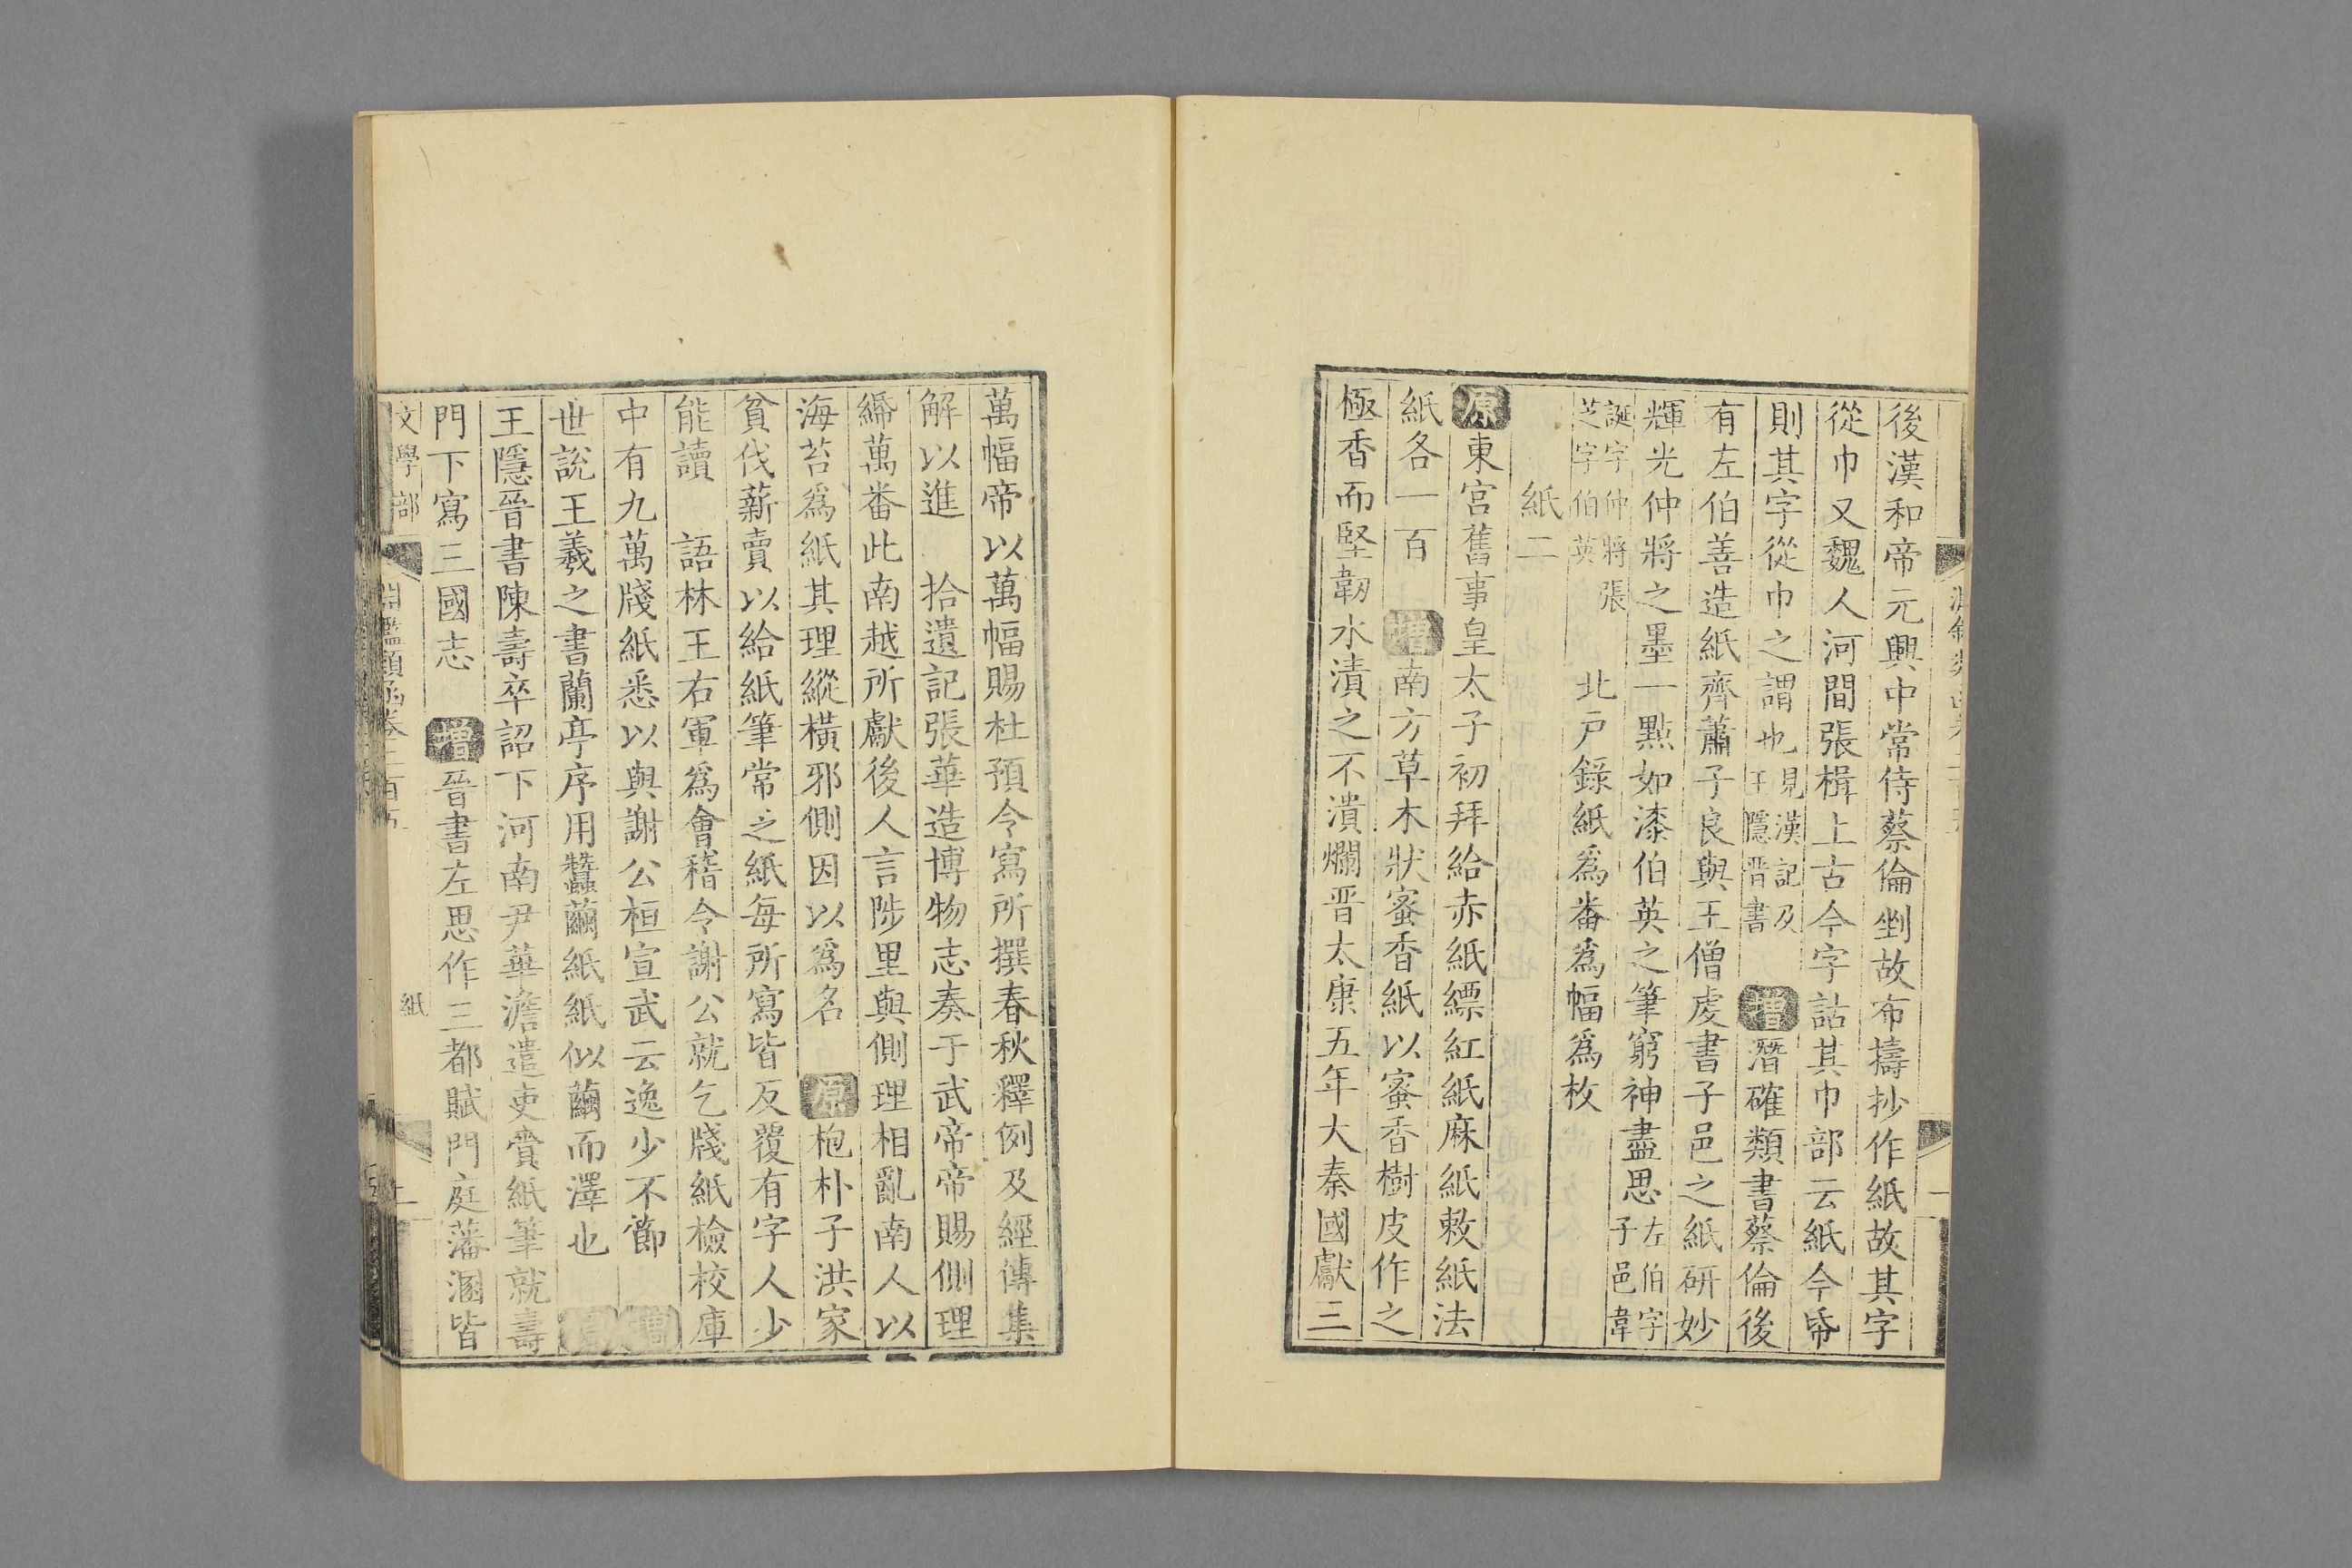 後漢和帝元興中常侍蔡倫剉故布擣抄作紙故其字
從巾又魏人河間張楫上古今字詁其巾部云紙今帋
則其字從巾之謂也見漢記及王隱晉書 增潛確類書蔡倫後
有左伯善造紙齊蕭子良與王僧虔書子邑之紙研妙
輝光仲將之墨一點如漆伯英之筆窮神盡思左伯字子邑韋
誕字仲將張芝字伯英 北戸錄紙爲番爲幅爲枚
紙二
原東宮舊事皇太子初拜給赤紙縹紅紙麻紙敕紙法
紙各一百 增南方草木狀蜜香紙以蜜香樹皮作之
極香而堅韌水漬之不潰爛晋太康五年大秦國獻三
萬幅帝以萬幅賜杜預令寫所撰春秋釋例及經傳集
解以進 拾遺記張華造博物志奏于武帝帝賜側理
紙萬番此南越所獻後人言陟里與側理相亂南人以
海苔爲紙其理縱橫邪側因以爲名 原枹朴子洪家
貧伐薪賣以給紙筆常之紙每所寫皆反覆有字人少
能讀 語林王右軍爲會稽令謝公就乞牋紙檢校庫
中有九萬牋紙悉以與謝公桓宣武云逸少不節 增
世說王羲之書蘭亭序用蠶繭紙紙似繭而澤也 原
王隱晉書陳壽卒詔下河南尹華澹遣吏賫紙筆就壽
門下寫三國志 增晉書左思作三都賦門庭藩溷皆
文學部 淵鑑類函卷二百 紙